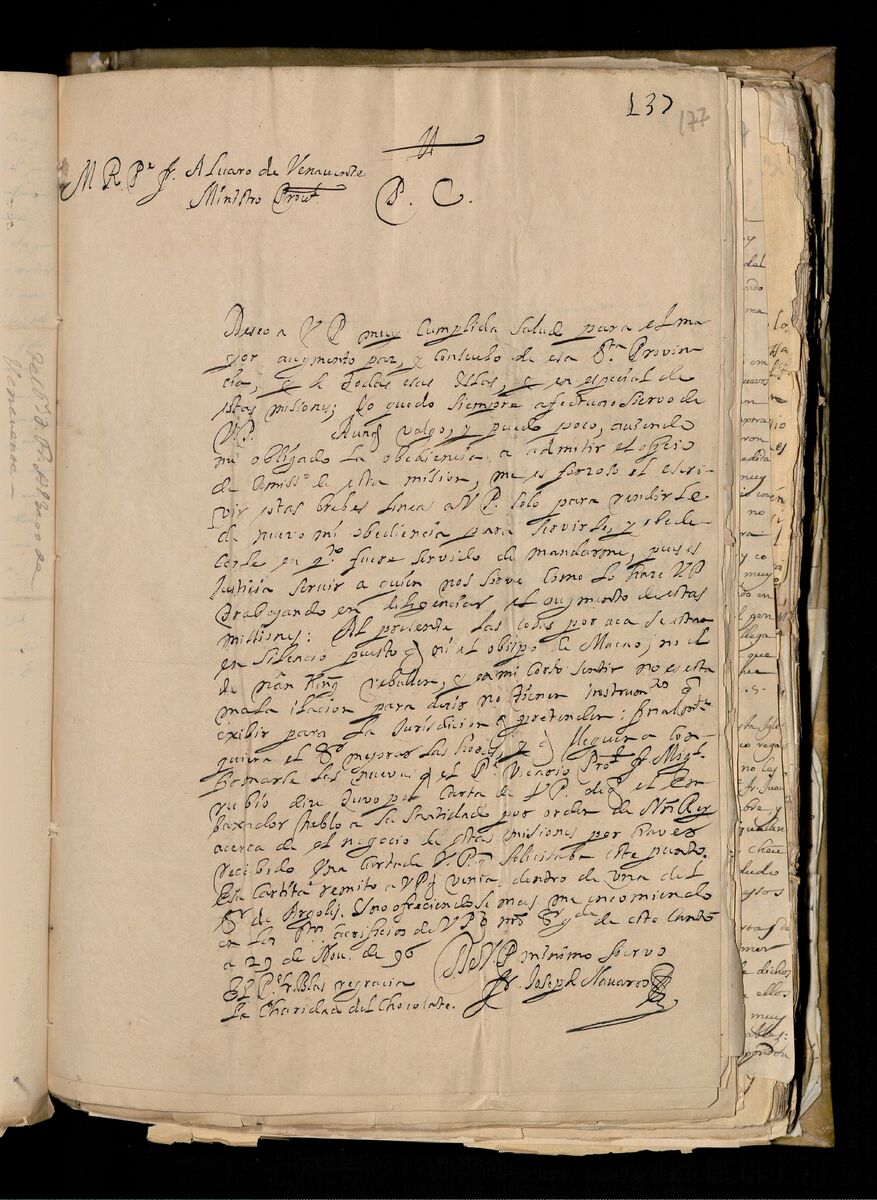 137
177
M R Pe fr. Aluaro de Venauente
Ministro Proul.
P. C.
Deseo a V P muy Cumplida Salud para el ma
yor augmento paz, y consuelo de esa Sta Provin
cia, y de todas esas Islas, y en especial de
estas misiones; yo quedo siempre afectuoso Siervo de
VP. Aunq valgo, y puedo poco, auiendo
me obligado la obediencia a admitir el oficio
de Comisso de esta mision, me es forzoso el escri
vir estas brebes lineas a V P. solo para rendirle
de nuevo mi obediencia para servirle, y obede
cerle en qto fuere servido de mandarme, pues es
Justicia servir a quien nos sirve como lo haze VP
trabajando en diligenciar el augmento de estas
missiones: Al presente las cosas por aca se estan
en silencio puesto q ni el obispo de Macao, ni el
de nan King rebullen, y en mi corto sentir no es esta
mala ilacion para decir no tienen instrumtos q
exibir para la Jurisdicion q pretenden: finalmte
quiera el Sr mejorar las cosas, y q lleguen a con
firmarse las nuevas q el Pe Vicario Proul fr Migl.
rubio dize tuvo por carta de V P de q el Em
baxador hablo a Su Santidad por orden de Nro Rey
acerca de el negocio de estas misiones por haver
recibido una carta de V P q solicitaba este punto.
Esa Cartita remito a VP q venia dentro de una del
Sr de Argolis. Y no ofreciendose mas me encomiendo
en los Stos sacrificios de VP q nro Sr gde de este Canton
a 29 de Nou. de 96
De V P minimo Siervo
fr. Joseph Nauarro
El Pe fr. Blas regracia
la Charidad del Chocolate.